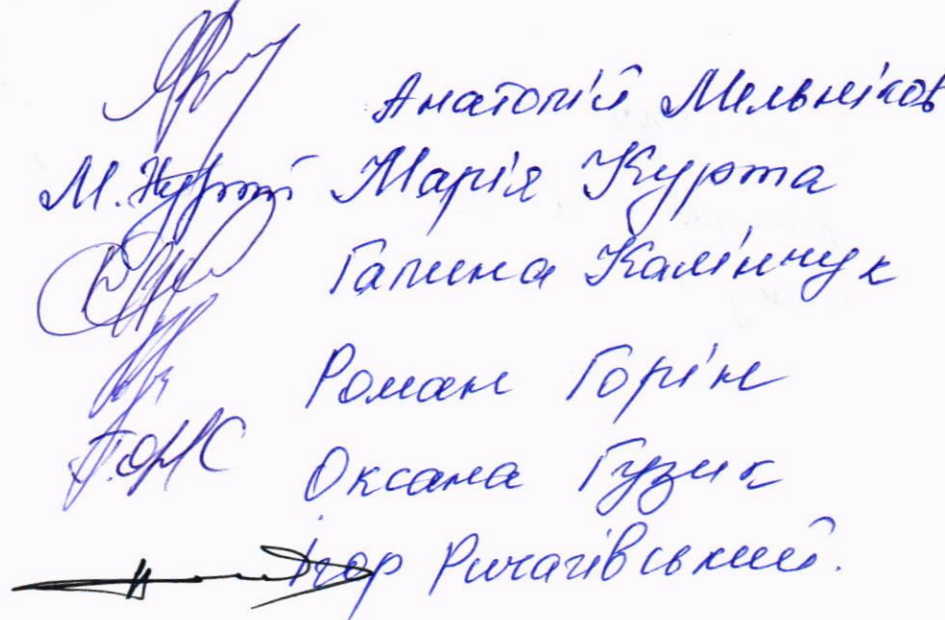 Анатолій Мельніков
М. Курта Марія Курта
Галина Калінчук
Роман Горін
Оксана Гузик
Ігор Ричагівський.